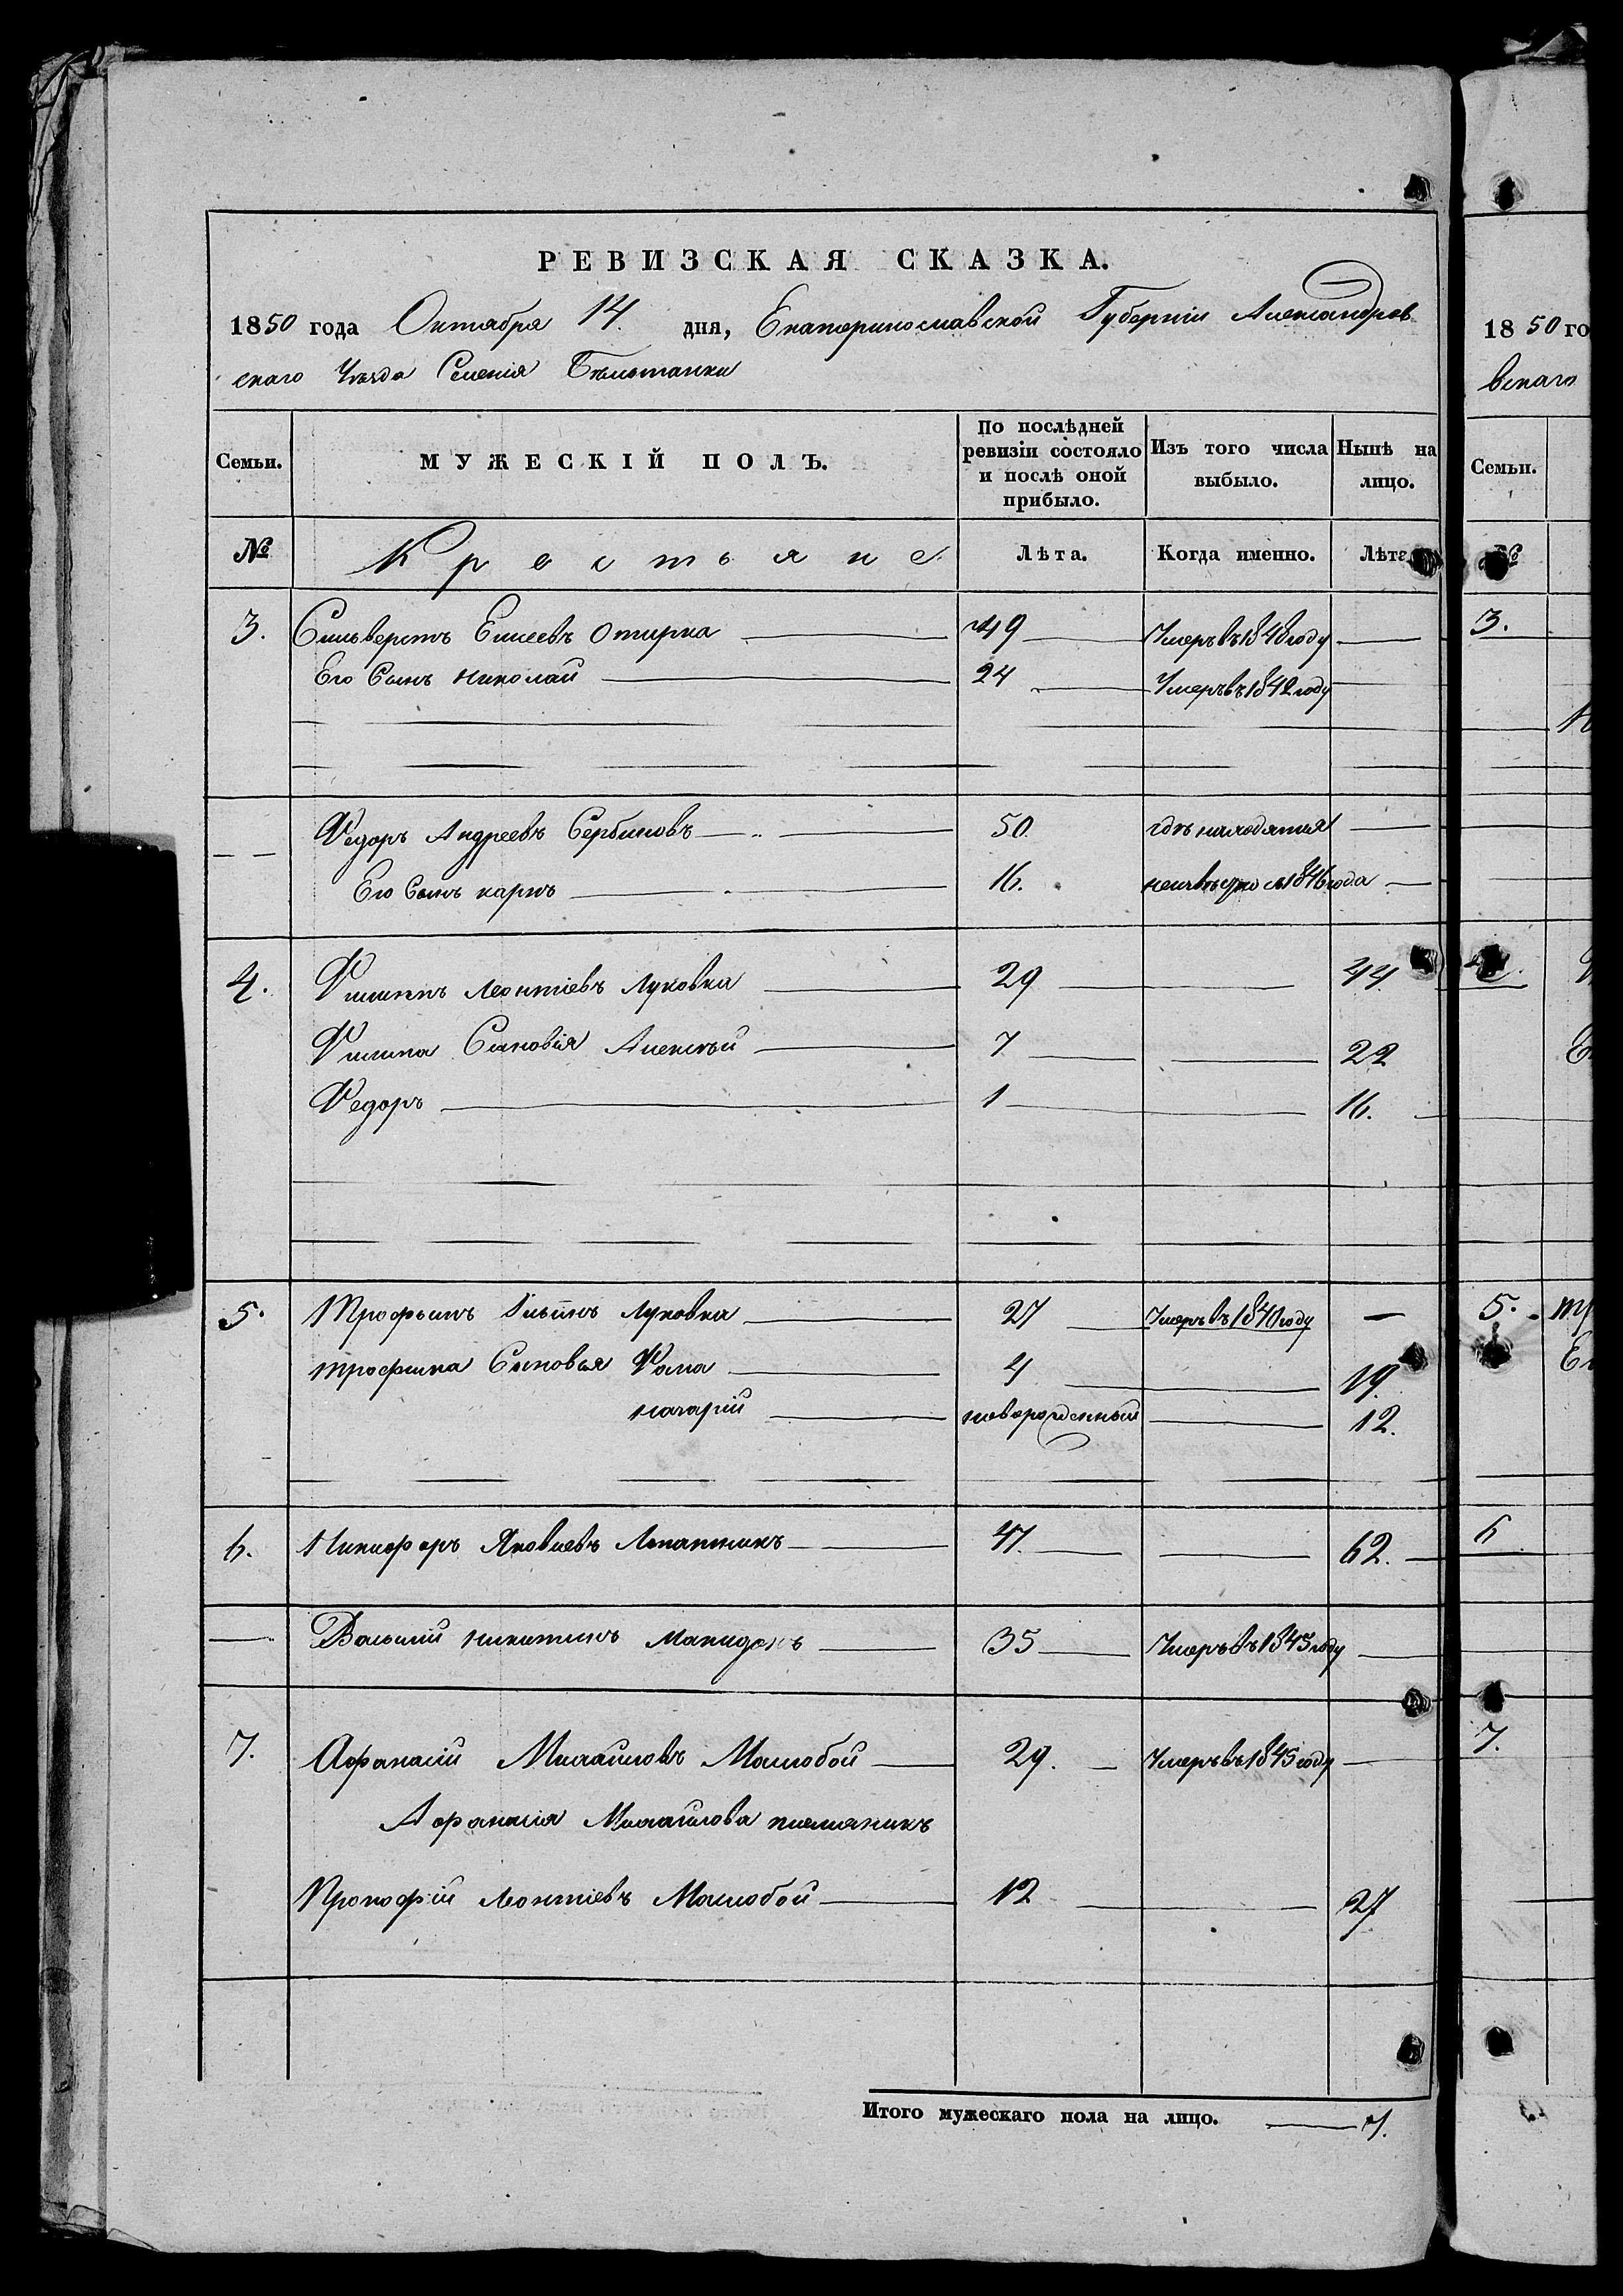 РЕВИЗСКАЯ СКАЗКА.
1850 года Октября 14. дня, Екатеринославской Губерніи Александров
скаго Уѣзда Селенія Бѣльманки
Семьи.
МУЖЕСКІЙ ПОЛЪ.
По послѣдней ревизіи состояло и послѣ оной прибыло.
Изъ того числа выбыло.
Нынѣ на лицо.
№ Крестьяне Лѣта. Когда именно. Лѣта
3. Сильверстъ Елисеевъ Отирка 49 Умеръ въ 1848 году
Его Сынъ николай 24 Умеръ въ 1842 году
Федоръ Андреевъ Сербиновъ 50. гдѣ находятся
Его Сынъ карпъ 16. неизвѣстно съ 1846 года
4. Филиппъ Леонтіевъ Луковка 29 44.
Филипа Сыновія Алексѣй 7 22
Федоръ 1 16.
5. Трофымъ Ильинъ Луковка 27 Умеръ въ 1840 году
трофима Сыновья Фома 4 19.
назарій новорожденный 12.
6. Никифоръ Яковлевъ Лопатникъ 47. 62.
Василий никитинъ Макидонъ 35 Умеръ въ 1845 году
7. Афанасій Михайловъ Маслобой 29. Умеръ въ 1845 году
Афанасія Михайлова племяникъ
Прокофій Леонтіевъ Маслобой 12 27
Итого мужескаго пола на лицо. 7.
1850 го
вскаго
Семьи.
№
3.
5.
6
7.